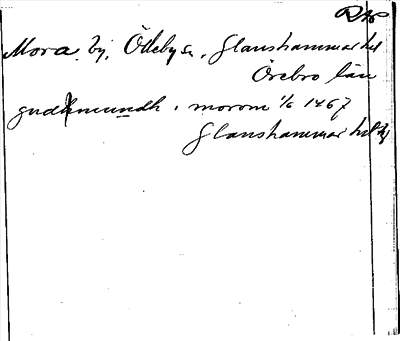 RAP
Mora by, Ödeby sn, Glanshammar hd
Örebro län
gudhmundh i morom 1/6 1467
Glanshammar hd